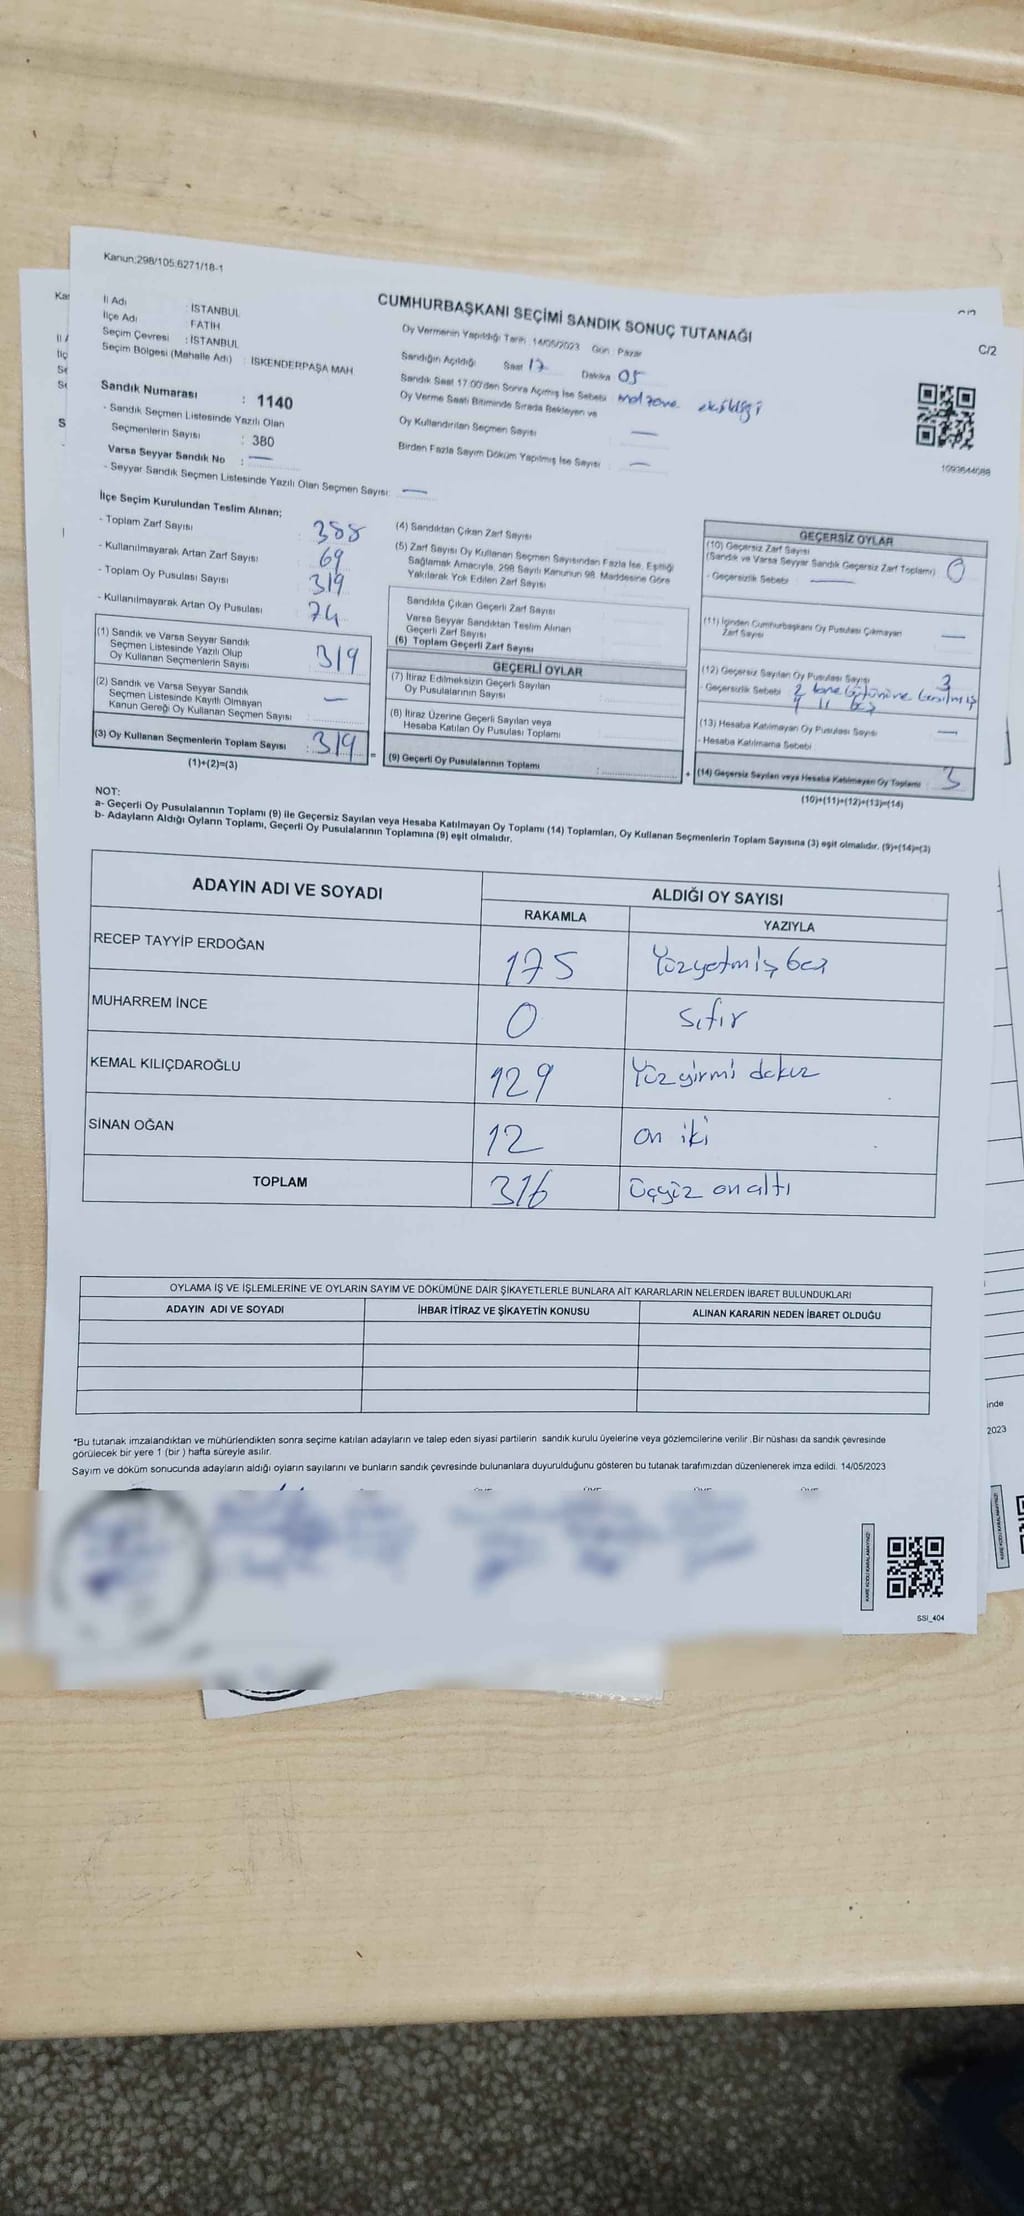 Kanun:298/105,6271/18-1
CUMHURBAŞKANI SEÇİMİ SANDIK SONUÇ TUTANAĞI
C/2
İl Adı : İSTANBUL
İlçe Adı : FATİH
Seçim Çevresi : İSTANBUL
Seçim Bölgesi (Mahalle Adı) : İSKENDERPAŞA MAH
Sandık Numarası : 1140
- Sandık Seçmen Listesinde Yazılı Olan
Seçmenlerin Sayısı : 380
Varsa Seyyar Sandık No : —
- Seyyar Sandık Seçmen Listesinde Yazılı Olan Seçmen Sayısı: —
Oy Vermenin Yapıldığı Tarih : 14/05/2023 Gün : Pazar
Sandığın Açıldığı Saat 17 Dakika 05
Sandık Saat 17:00'den Sonra Açılmış İse Sebebi malzeme eksikliği
Oy Verme Saati Bitiminde Sırada Bekleyen ve
Oy Kullandırılan Seçmen Sayısı —
Birden Fazla Sayım Döküm Yapılmış İse Sayısı : —
1093644088
İlçe Seçim Kurulundan Teslim Alınan;
- Toplam Zarf Sayısı 388
- Kullanılmayarak Artan Zarf Sayısı 69
- Toplam Oy Pusulası Sayısı 319
- Kullanılmayarak Artan Oy Pusulası 74
(1) Sandık ve Varsa Seyyar Sandık
Seçmen Listesinde Yazılı Olup
Oy Kullanan Seçmenlerin Sayısı 319
(2) Sandık ve Varsa Seyyar Sandık
Seçmen Listesinde Kayıtlı Olmayan
Kanun Gereği Oy Kullanan Seçmen Sayısı —
(3) Oy Kullanan Seçmenlerin Toplam Sayısı : 319 =
(1)+(2)=(3)
(4) Sandıktan Çıkan Zarf Sayısı
(5) Zarf Sayısı Oy Kullanan Seçmen Sayısından Fazla İse, Eşitliği
Sağlamak Amacıyla, 298 Sayılı Kanunun 98. Maddesine Göre
Yakılarak Yok Edilen Zarf Sayısı
Sandıkta Çıkan Geçerli Zarf Sayısı
Varsa Seyyar Sandıktan Teslim Alınan
Geçerli Zarf Sayısı
(6) Toplam Geçerli Zarf Sayısı
GEÇERLİ OYLAR
(7) İtiraz Edilmeksizin Geçerli Sayılan
Oy Pusulalarının Sayısı
(8) İtiraz Üzerine Geçerli Sayılan veya
Hesaba Katılan Oy Pusulası Toplamı
(9) Geçerli Oy Pusulalarının Toplamı : +
GEÇERSİZ OYLAR
(10) Geçersiz Zarf Sayısı
(Sandık ve Varsa Seyyar Sandık Geçersiz Zarf Toplamı) 0
- Geçersizlik Sebebi —
(11) İçinden Cumhurbaşkanı Oy Pusulası Çıkmayan
Zarf Sayısı —
(12) Geçersiz Sayılan Oy Pusulası Sayısı 3
- Geçersizlik Sebebi 2 tane bütününe basılmış
1 " boş
(13) Hesaba Katılmayan Oy Pusulası Sayısı —
- Hesaba Katılmama Sebebi
(14) Geçersiz Sayılan veya Hesaba Katılmayan Oy Toplamı : 3
(10)+(11)+(12)+(13)=(14)
NOT:
a- Geçerli Oy Pusulalarının Toplamı (9) ile Geçersiz Sayılan veya Hesaba Katılmayan Oy Toplamı (14) Toplamları, Oy Kullanan Seçmenlerin Toplam Sayısına (3) eşit olmalıdır. (9)+(14)=(3)
b- Adayların Aldığı Oyların Toplamı, Geçerli Oy Pusulalarının Toplamına (9) eşit olmalıdır.
ADAYIN ADI VE SOYADI
ALDIĞI OY SAYISI
RAKAMLA YAZIYLA
RECEP TAYYİP ERDOĞAN 175 Yüzyetmiş beş
MUHARREM İNCE 0 Sıfır
KEMAL KILIÇDAROĞLU 129 Yüzyirmi dokuz
SİNAN OĞAN 12 on iki
TOPLAM 316 üçyüz onaltı
OYLAMA İŞ VE İŞLEMLERİNE VE OYLARIN SAYIM VE DÖKÜMÜNE DAİR ŞİKAYETLERLE BUNLARA AİT KARARLARIN NELERDEN İBARET BULUNDUKLARI
ADAYIN ADI VE SOYADI İHBAR İTİRAZ VE ŞİKAYETİN KONUSU ALINAN KARARIN NEDEN İBARET OLDUĞU
*Bu tutanak imzalandıktan ve mühürlendikten sonra seçime katılan adayların ve talep eden siyasi partilerin sandık kurulu üyelerine veya gözlemcilerine verilir .Bir nüshası da sandık çevresinde
görülecek bir yere 1 (bir ) hafta süreyle asılır.
Sayım ve döküm sonucunda adayların aldığı oyların sayılarını ve bunların sandık çevresinde bulunanlara duyurulduğunu gösteren bu tutanak tarafımızdan düzenlenerek imza edildi. 14/05/2023
SSI_404
inde
2023